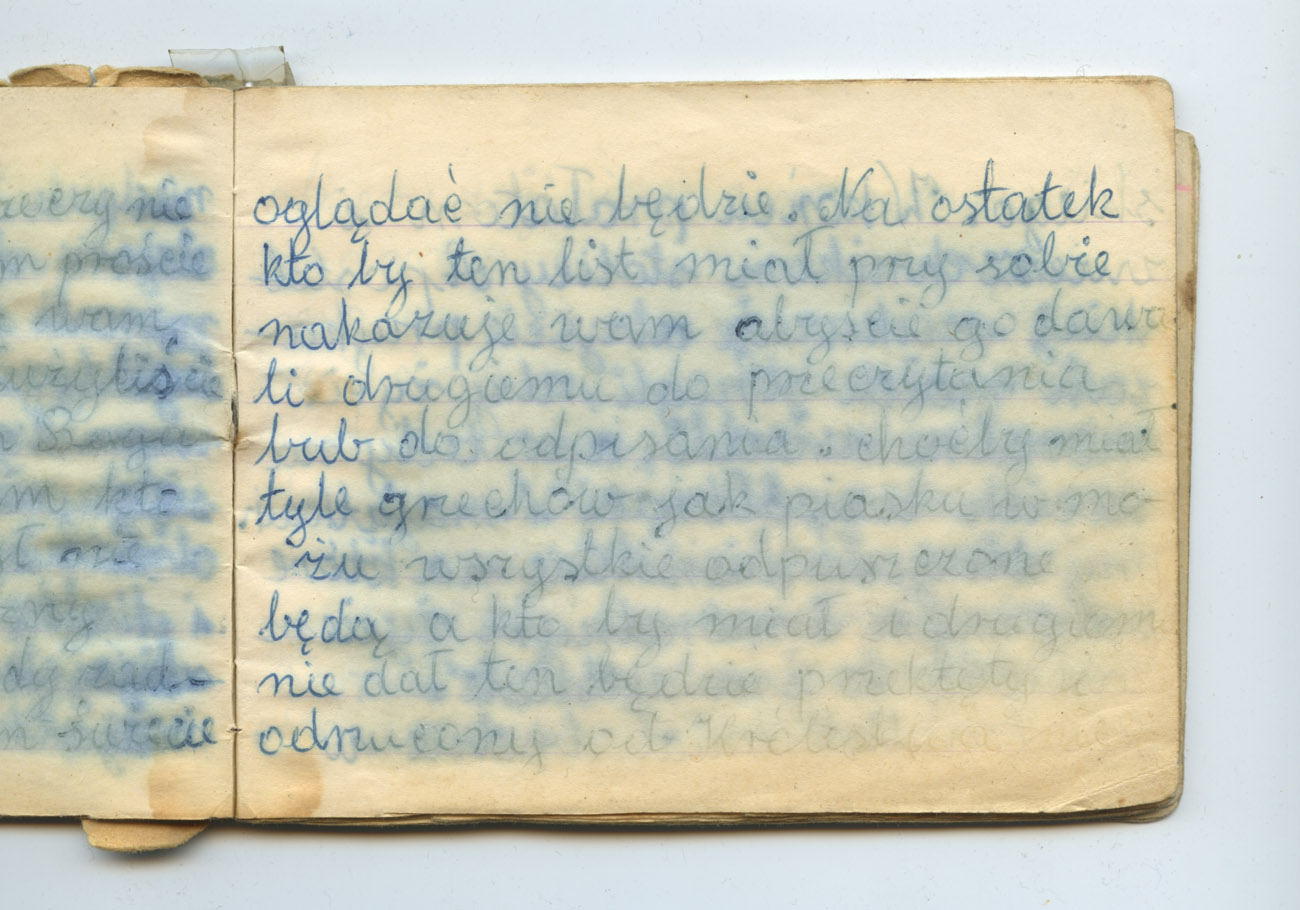 rzeczy nie
m proście
wam
użyliście
Boga
m kto
st nie
zny
dy rad-
m świecie
oglądać nie będzie. Na ostatek
kto by ten list miał przy sobie
nakazuje wam abyście go dawa
li drugiemu do przeczytania
bub do odpisania. choćby miał
tyle grzechów jak piasku w mo-
żu wszystkie odpuszczone
będą a kto by miał i drugiem
nie dał ten będzie przeklęty i
odrzucony od Królestwa